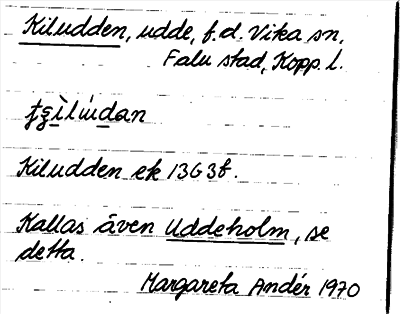 Kiludden, udde, f.d. Vika sn,
Falu stad, Kopp. l.
Kiludden ek 13G3f.
Kallas även Uddeholm, se
detta.
Margareta Andér 1970